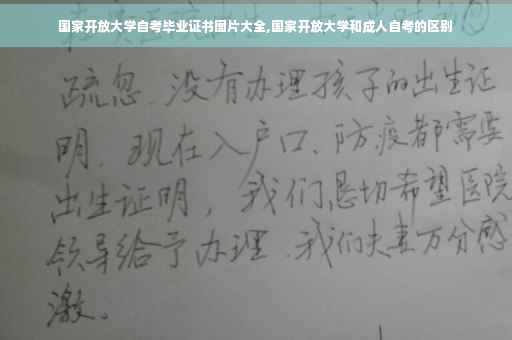 国家开放大学自考毕业证书图片大全,国家开放大学和成人自考的区别
疏忽.没有办理孩子的出生证
明.现在入户口、防疫都需要
出生证明，我们恳切希望医院
领导给予办理.我们夫妻万分感
激。